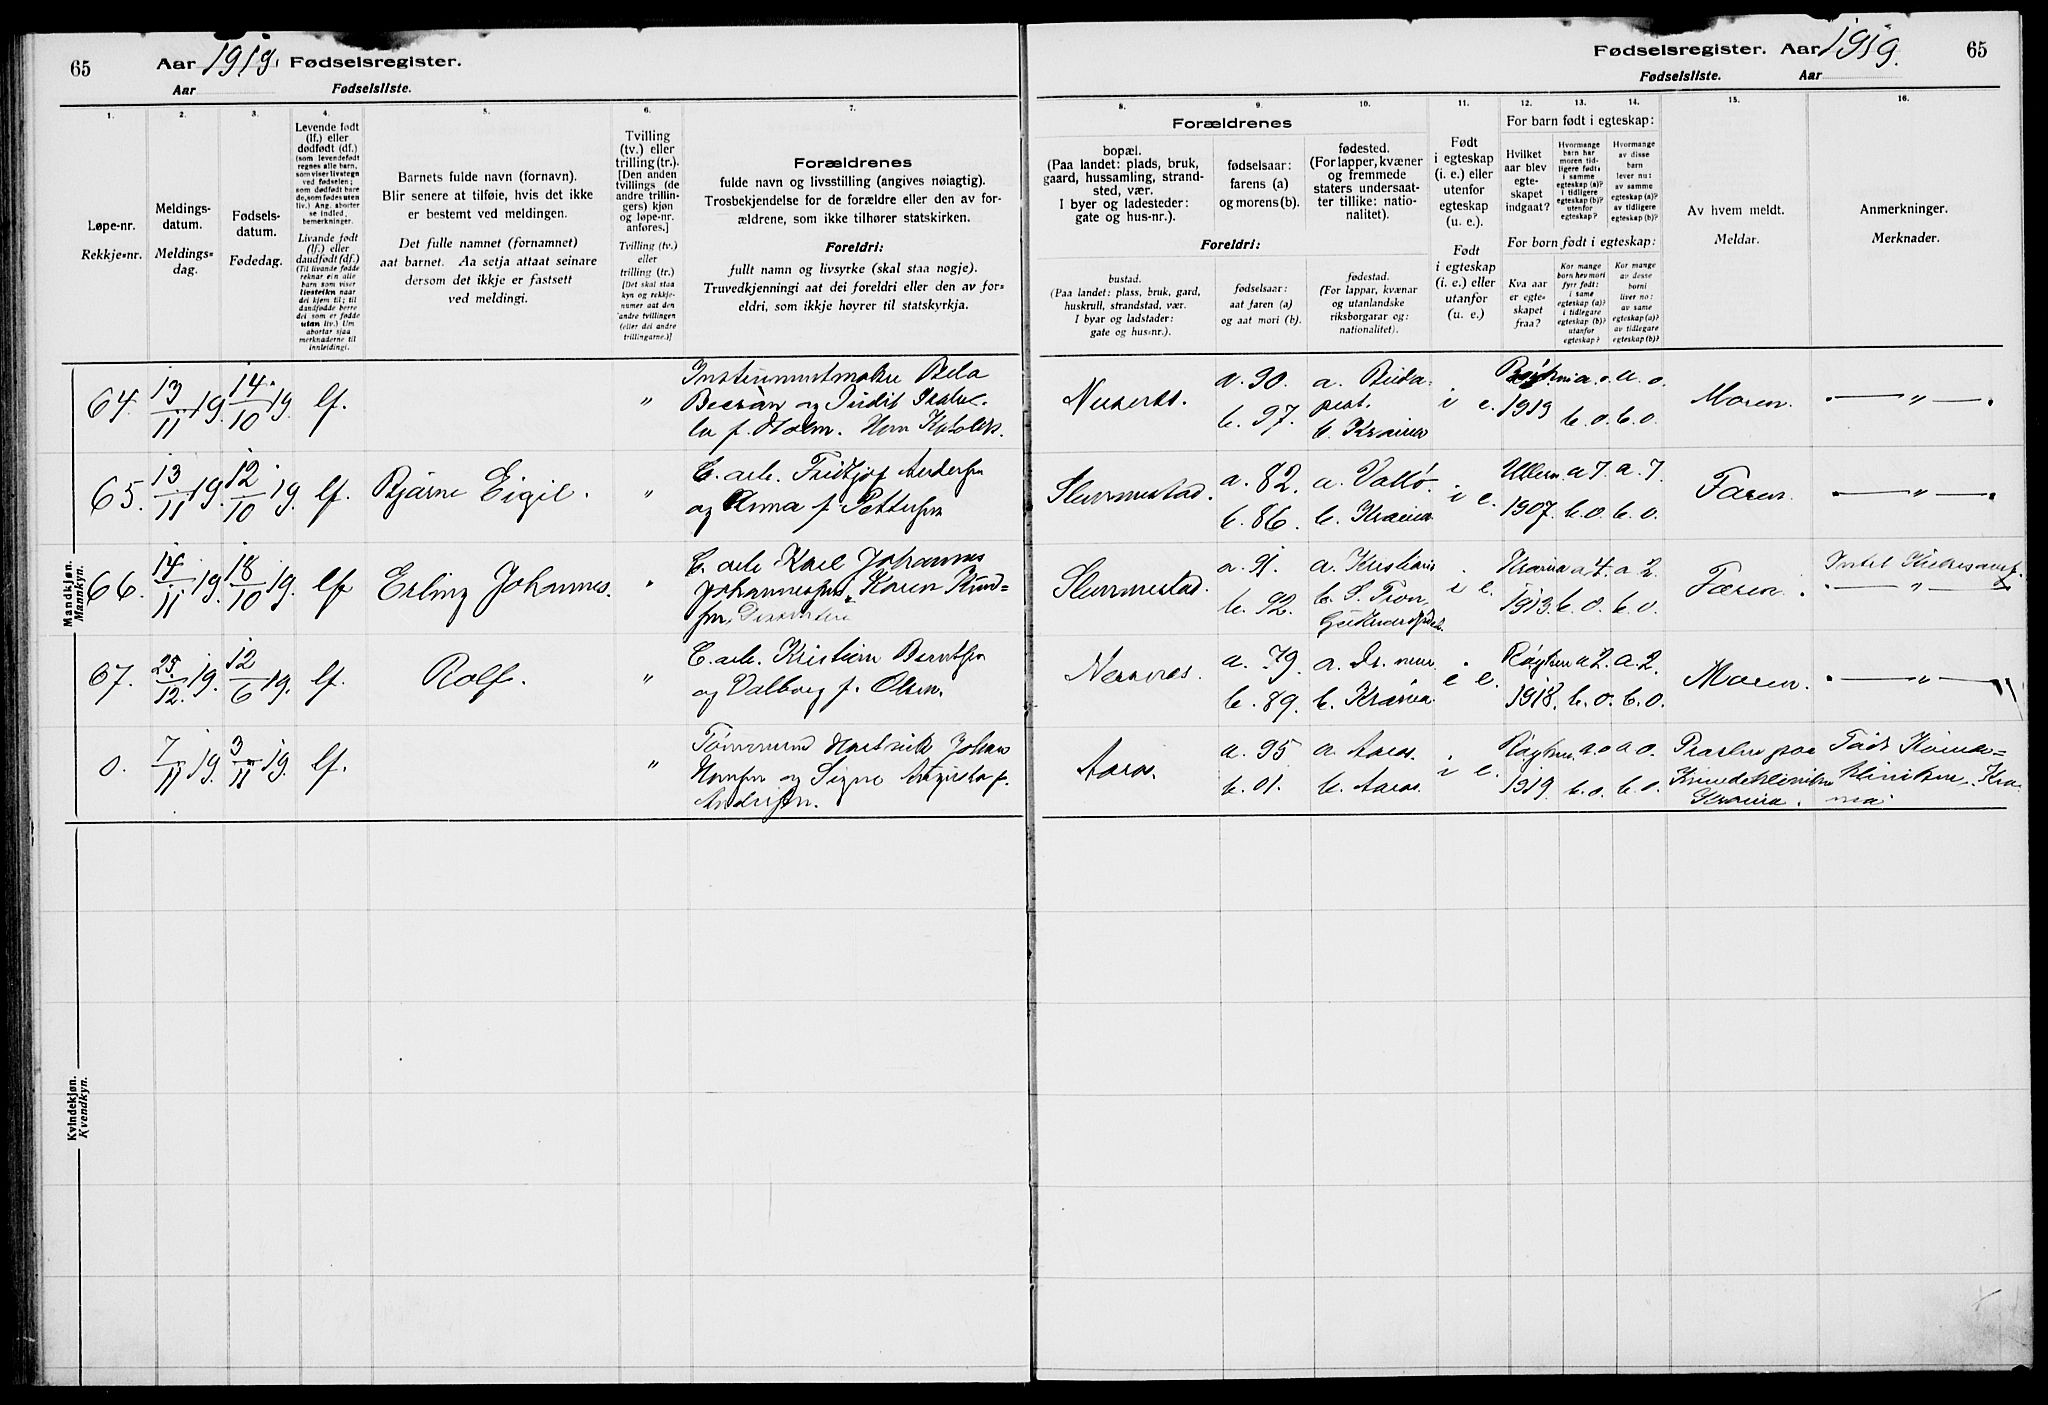 65
Aar 1919. Fødselsregister.
Aar
Fødselsliste.
1.
2.
3.
4.
5.
6.
7.
Løpe-nr.
Rekkje=nr.
Meldings-
datum.
Meldings=
dag.
Fødsels-
datum.
Fødedag.
Levende født
(lf.) eller
dødfødt (df.)
(som levendefødt
regnes alle barn,
som viser livstegn
ved fødselen;
som dødfødt bare
de, som fødes uten
liv.) Ang. aborter
se indled.
bemerkninger.
Livande født
(lf.) eller
daudfødt (df.)
(Til livande fødde
reknar ein alle
barn som viser
livsteikn naar
dei kjem til; til
daudfødde berre
dei som er fødde
utan liv.) Um
abortar sjaa
merknaderne til
innleidingi.
Barnets fulde navn (fornavn).
Blir senere at tilføie, hvis det ikke
er bestemt ved meldingen.
Det fulle namnet (fornamnet)
aat barnet. Aa setja attaat seinare
dersom det ikkje er fastsett
ved meldingi.
Tvilling
(tv.) eller
trilling (tr.).
[Den anden
tvillings (de
andre trillin-
gers) kjøn
og løpe-nr.
anføres.]
Tvilling (tv.)
eller
trilling (tr.)
[Det skal staa
kyn og rekkje-
numer aat den
andre tvillingen
(eller dei andre
trillingarne.)]
Forældrenes
fulde navn og livsstilling (angives nøiagtig).
Trosbekjendelse for de forældre eller den av for-
ældrene, som ikke tilhører statskirken.
Foreldri:
fullt namn og livsyrke (skal staa nøgje).
Truvedkjenningi aat dei foreldri eller den av for=
eldri, som ikkje høyrer til statskyrkja.
Mandkjøn.
Mannkyn.
64. 13/11 19. 14/10 19. lf. " Instrumentmaker Bela
og Judit
f. Holm.
65. 13/11 19. 12/10 19. lf. Bjarne Eigil. " Fridtjof Andersen
og Anna f. Pettersen
66. 14/11 19. 18/10 19. lf. Erling Johannes. " Karl Johannes
Johannessen, Karen Knud-
sen,
67. 25/12. 19. 12/6 19. lf. Rolf. " Kristian Berntsen
og Valborg f. Olsen.
0. 7/11 19. 3/11 19. lf. " Johan
Hansen og Signe Augusta f.
Andersen.
Kvindekjøn.
Kvendkyn.
Fødselsregister. Aar 1919.
65
Fødselsliste. Aar
8.
9.
10.
11.
12.
13.
14.
15.
16.
Forældrenes
bopæl.
(Paa landet: plads, bruk,
gaard, hussamling, strand-
sted, vær.
I byer og ladesteder:
gate og hus-nr.).
fødselsaar:
farens (a)
og morens (b).
fødested.
(For lapper, kvæner
og fremmede
staters undersaat-
ter tillike: natio-
nalitet).
Foreldri:
bustad.
(Paa landet: plass, bruk, gard,
huskrull, strandstad, vær.
I byar og ladstader:
gate og hus=nr.).
fødselsaar:
aat faren (a)
og aat mori (b).
fødestad.
(For lappar, kvænar
og utanlandske
riksborgarar og:
nationalitet).
Født
i egteskap
(i. e.) eller
utenfor
egteskap
(u. e.).
Født
i egteskap
(i. e.) eller
utanfor
(u. e.)
For barn født i egteskap:
Hvilket
aar blev
egte-
skapet
indgaat?
Hvormange
barn har
moren tid-
ligere født:
i samme
egteskap (a)?
i tidligere
egteskap (b)?
utenfor
egteskap?
Hvormange
av disse
barn
lever nu:
av samme
egteskap (a)?
av tidligere
egteskap (b)?
For born født i egteskap:
Kva aar
er egte=
skapet
fraa?
Kor mange
born hev mori
fyrr født:
i same
egteskap (a)?
i tidlegare
egteskap (b)?
utanfor
egteskap?
Kor mange
av desse
borni
liver no:
av same
egteskap (a)?
av tidlegare
egteskap (b)?
Av hvem meldt.
Meldar.
Anmerkninger.
Merknader.
a. 90. a. Buda- i e. a. o. a. o. Moren. — " —
b. 97. pest. 1919 b. o. b. o.
b. Krania
Slemmestad. a. 82. a. Vallø. i e. Ullern a 7 a. 7. Faren. — " —
b. 86. b. Krania 1907. b. o. b. o.
Slemmestad. a. 91. a. Kristiania i e. Krania a 4. a 2. Faren.
b. 92. 1913. b. o. b. o. — " —
Nærsnes. a. 79. i e. Røyken a 2. a. 2 Moren. — " —
b. 89. b. Krania. 1918. b. o. b. o.
Aaros. a. 95 a. Aaros. i e. Røyken a. o a. o. Født Kvinde=
b. 01. b. Aaros. 1919. b. o. b. o. Kvindeklinikken klinikken, Kra-
Krania. nia